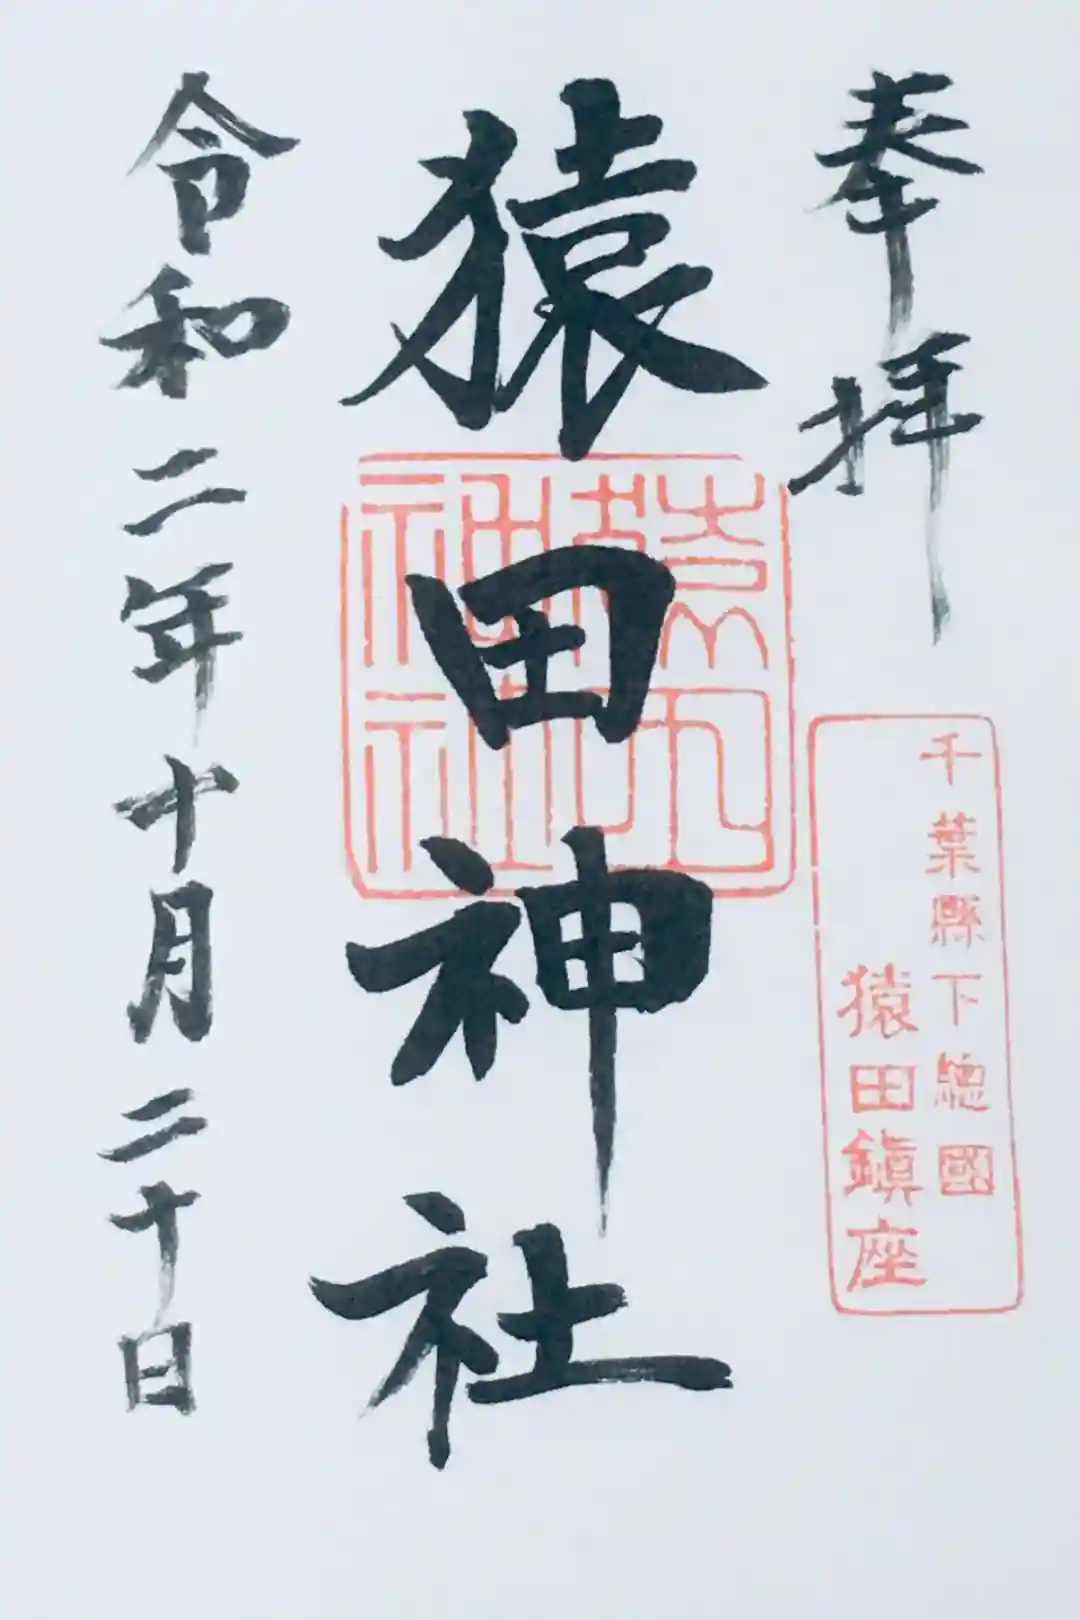 奉拝
千葉縣下總國
猿田鎭座
猿田神社
猿田
神社
令和二年十月二十日